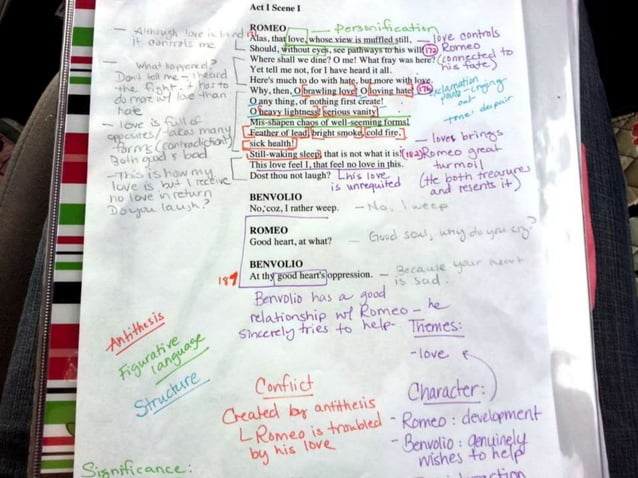 Act I Scene I
ROMEO
Alas, that love, whose view is muffled still,
Should, without eyes, see pathways to his will!
Where shall we dine? O me! What fray was here?
Yet tell me not, for I have heard it all.
Here's much to do with hate, but more with love.
Why, then, O brawling love! O loving hate!
O any thing, of nothing first create!
O heavy lightness! serious vanity!
Mis-shapen chaos of well-seeming forms!
Feather of lead, bright smoke, cold fire,
sick health!
Still-waking sleep, that is not what it is!
This love feel I, that feel no love in this.
Dost thou not laugh?
BENVOLIO
No, coz, I rather weep.
ROMEO
Good heart, at what?
BENVOLIO
At thy good heart's oppression.
- Although love is blind
it controls me
- What happened?
Don't tell me - I heard
the fight. It has to
do more w/ love than
hate
- love is full of
opposites/takes many
forms (contradiction)
Both good & bad
- This is how my
love is but I receive
no love in return
Do you laugh?
- personification
love controls
172 Romeo
(connected to
his fate)
176
exclamation
points - crying
out
tone: despair
- loves brings
(182) Romeo great
turmoil
(He both treasures
and resents it)
His love
is unrequited
- No, I weep
- Good soul, why do you cry?
- Because your heart
is sad.
189
Benvolio has a good
relationship w/ Romeo - he
sincerely tries to help
Themes:
- love
Antithesis
Figurative
language
Structure
Conflict
Created by antithesis
Romeo is troubled
by his love
Character:
- Romeo: development
- Benvolio: genuinely
wishes to help
Significance: